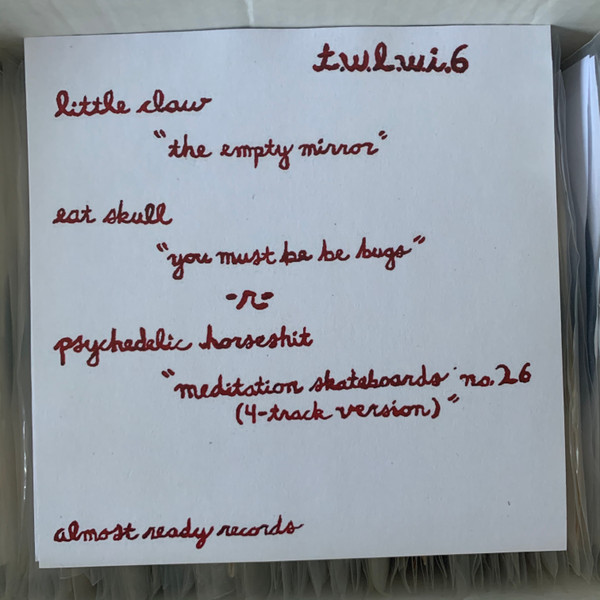 t.w.l.w.i.6
little claw
"the empty mirror"
eat skull
"you must be be bugs"
-r-
psychedelic horseshit
"meditation skateboards no.26
(4-track version)"
almost ready records